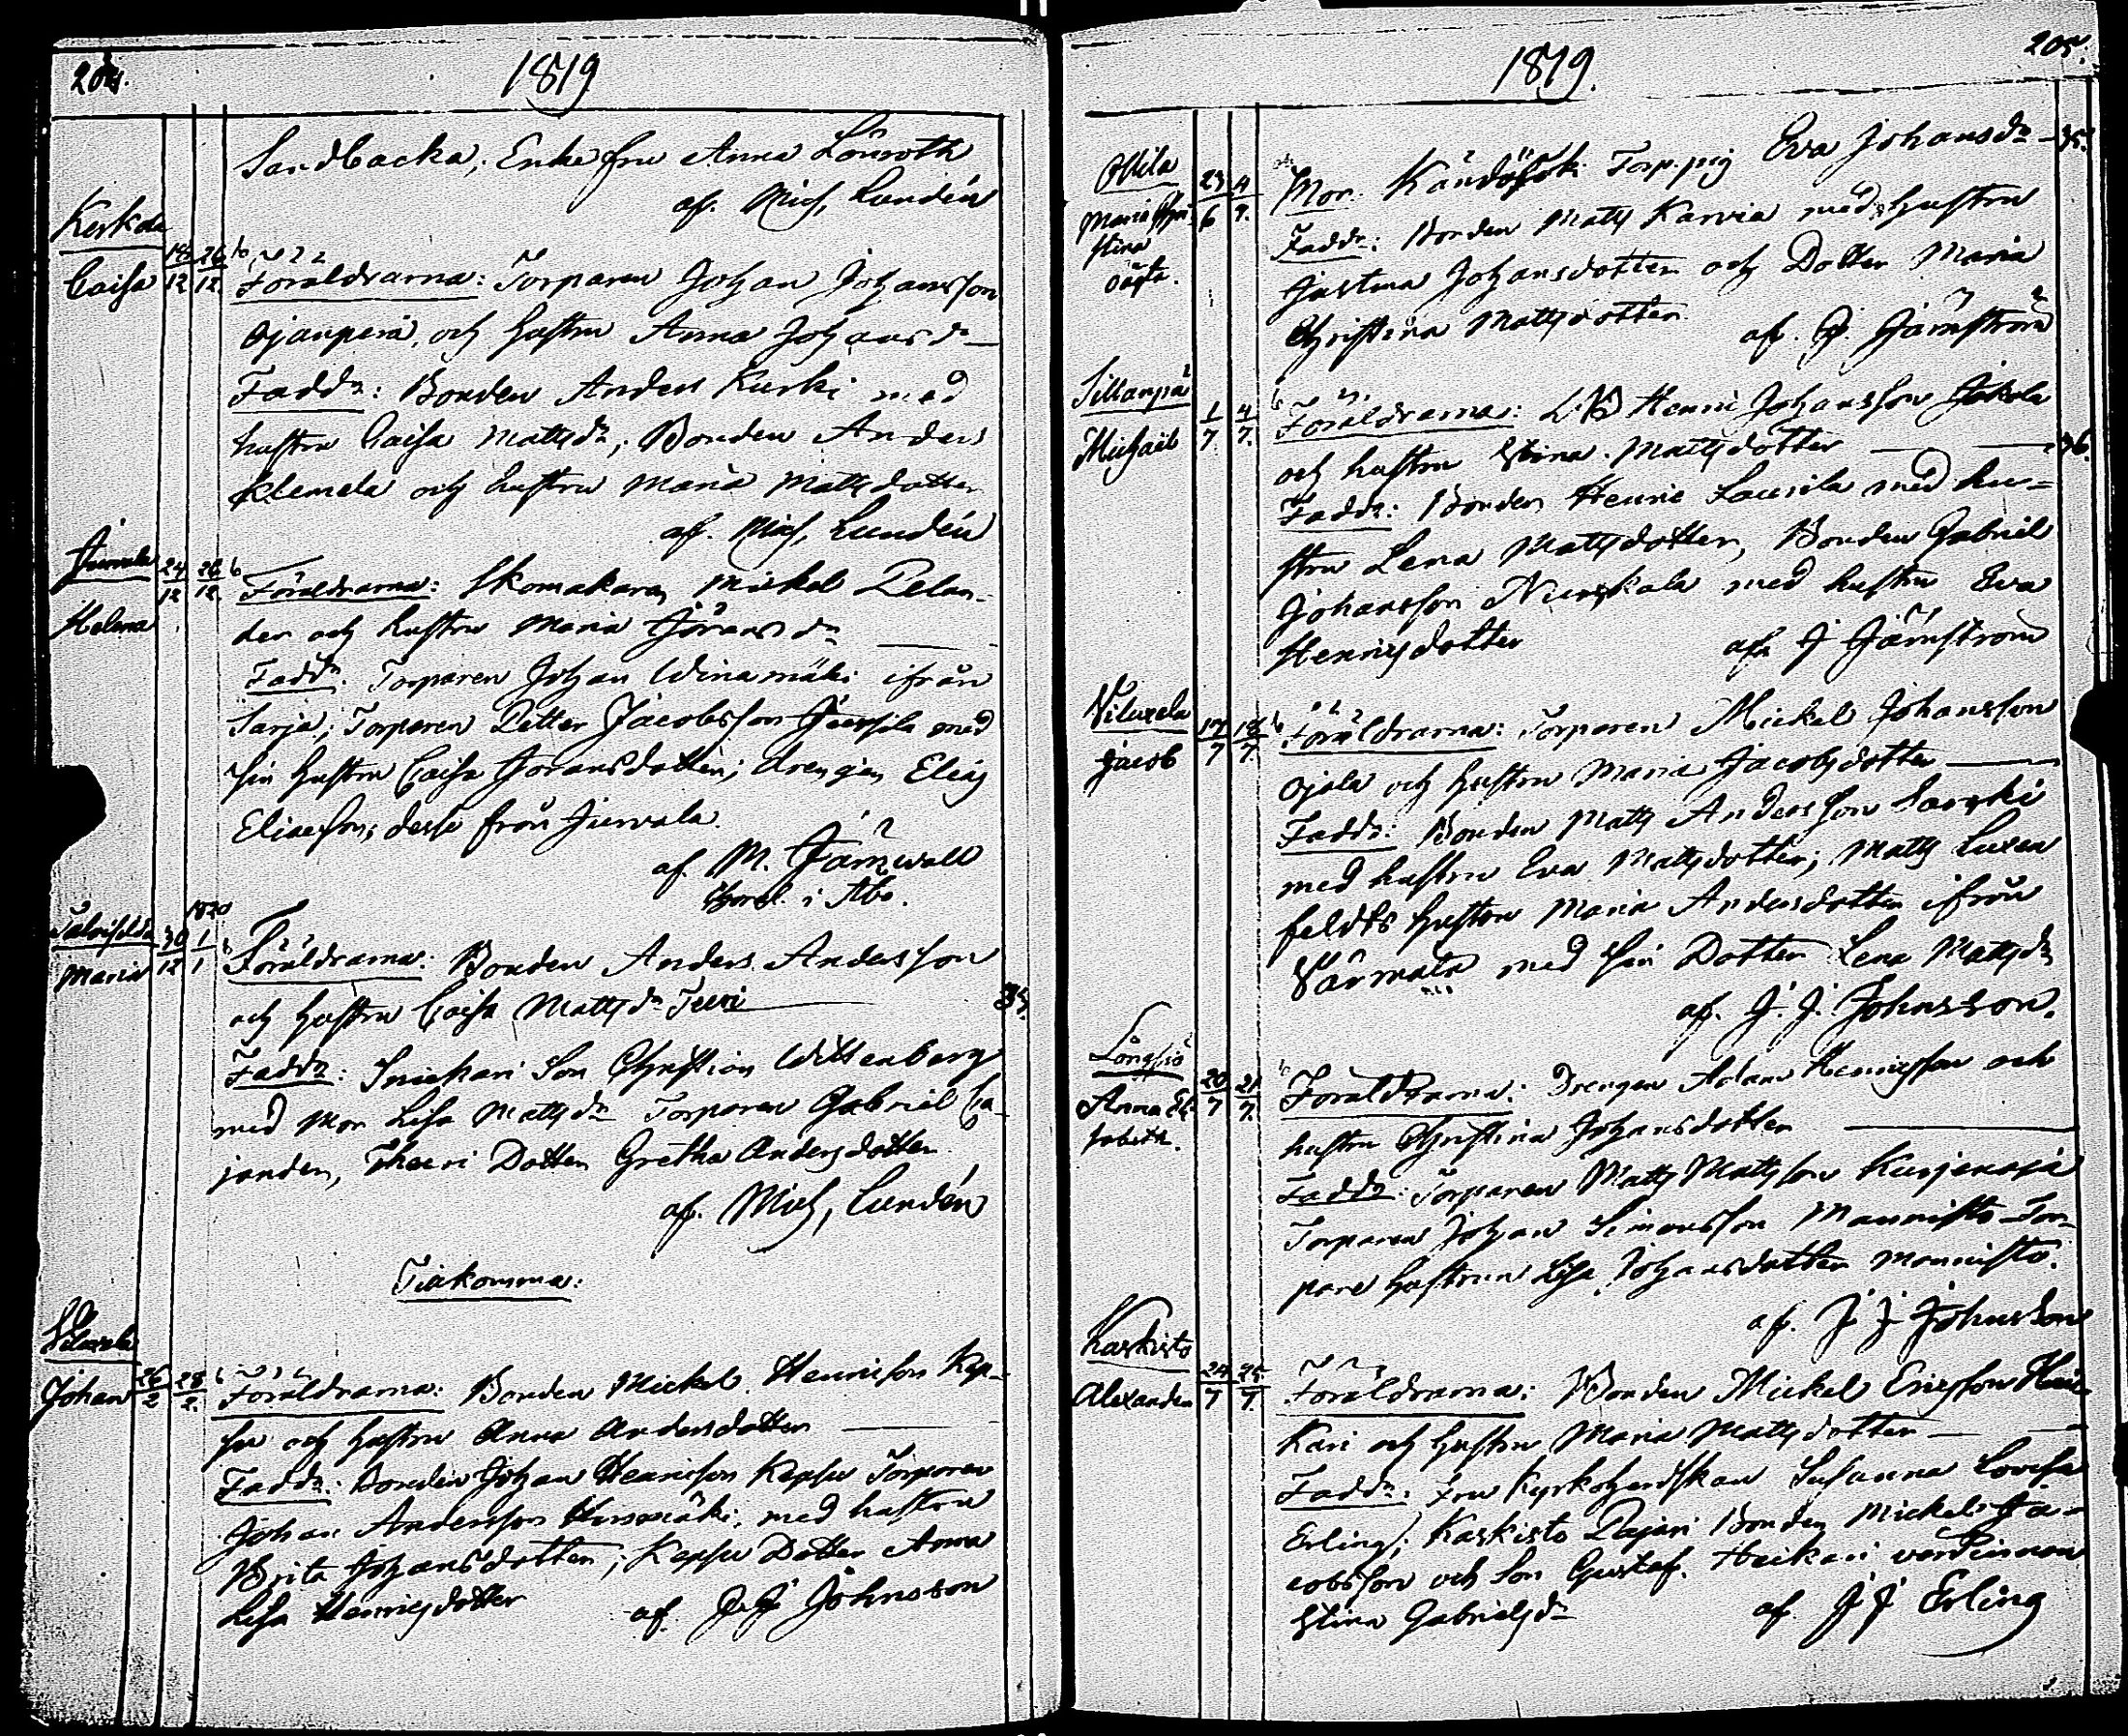 204.
1819
Sandbacka; Enke fru Anna Lönroth
af. Mich, Lundén
Caisa
12 12.
Föräldrarna: Torparen Johan Johansson
Ojanperä, och hustru Anna Johansdr
Faddr: Bonden Anders Kurki med
hustru Caisa Mattsdr; Bonden Anders
Klemela och hustru Maria Mattsdotter
af. Mich, Lundén
Helena
24 26
12 12.
Föräldrarna: Skomakaren Mickel Pelan-
der och hustru Maria Göransdr
Faddr. Torparen Johan Winamäki ifrån
Sarja; Torparen Petter Jacobsson Juusila med
sin hustru Caisa Göransdotter; drengen Elias
Eliaesson; desse från Juvvala.
af. M. Järnwall
i Åbo.
1820
Maria
30 1
12 1
Föräldrarna: Bonden Anders Andersson
och hustru Caisa Mattsdr Teeri
34.
Faddr: Snickari Son Christian Wittenberg
med Mor Lisa Mattsdr Torparen Gabriel Ca-
jander, Theeri Dotter Gretha Andersdotter.
af. Mich, Lundén
Tiakomma:
Viluxela
Johan
26 28
2 2.
Föräldrarna: Bonden Mickel Henricson Kep-
su och hustru Anna Andersdotter
Faddr: Bonden Johan Henricson Kepsu Torparen
Johan Andersson med hustru
Brita Johansdotter; Kepsu Dotter Anna
Lisa Henricsdotter
af. J. J Johnsson
205.
1819.
Ollila
Maria Chri-
stina
oäkta.
23 4
6 7.
Mor. Torp. pig Eva Johansdr
35.
Faddr: Bonden Matts Karvia med hustru
Justina Johansdotter och Dotter Maria
Christina Mattsdotter
af. J. Järnström
Sillanpä
Michaël
1 4
7 7.
Föräldrarna: Henric Johansson Jokela
och hustru Stina Mattsdotter
36.
Faddr: Bonden Henric Laurila med hu-
stru Lena Mattsdotter, Bonden Gabriel
Johansson Nuoskala med hustru Eva
Henricsdotter
af J Järnström
Viluxela
Jacob
17 18
7 7.
Föräldrarna: Torparen Mickel Johansson
Ojala och hustru Maria Jacobsdotter
Faddr: Bonden Matts Andersson Saveki
med hustru Eva Mattsdotter; Matts Luxen
feldts hustru Maria Andersdotter ifrån
Värmala med sin Dotter Lena Mattsdr
af. J. J. Johnsson.
Långsjö
Anna Eli-
sabeth.
20 21
7 7.
Föräldrarna: Drengen Adam Henricsson och
hustru Christina Johansdotter
Faddr: Torparen Matts Mattsson Kurjenojä
Torparen Johan Simonsson Mannisto Tor-
pare hustrun Lisa Johansdotter Mannisto.
af. J J Johnsson
Karkisto
Alexander
24 25.
7 7.
Föräldrarna: Bonden Mickel Ericsson Hei-
kari och hustru Maria Mattsdotter
Faddr: Fru Kyrkoherdskan Susanna Lovisa
Erling; Karkisto Pajari Bonden Mickel Ja-
cobsson och Son Gustaf. Heikari värdinnan
Stina Gabrielsdr
af J J Erling